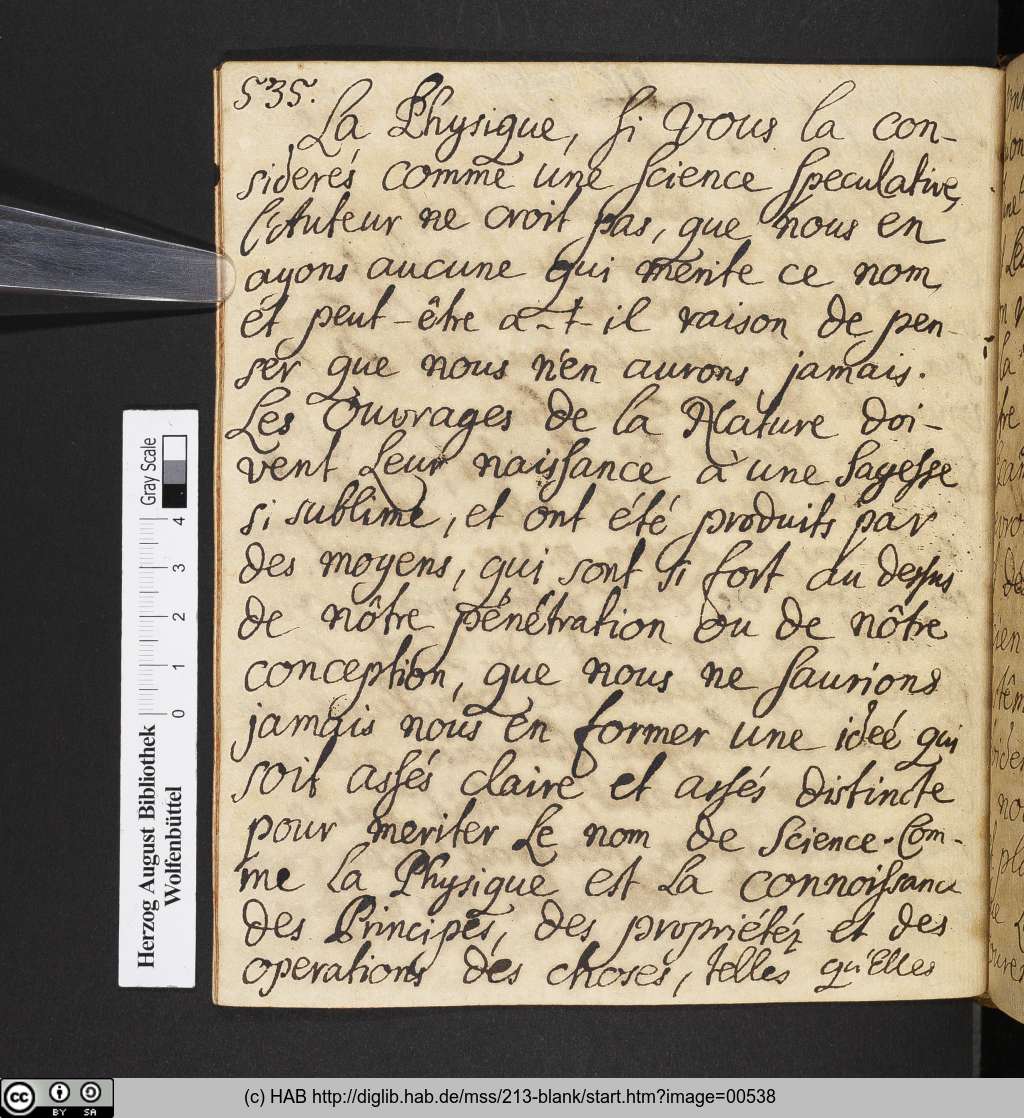 535.
La Physique, si vous la con-
siderés comme une science speculative,
l'Auteur ne croit pas, que nous en
ayons aucune qui merite ce nom,
et peut-être a-t-il raison de pen-
ser que nous n'en aurons jamais.
Les Ouvrages de la Nature doi-
vent Leur naissance à une sagesse
si sublime, et ont été produits par
des moyens, qui sont si fort au dessus
de nôtre pénétration ou de nôtre
conception, que nous ne saurions
jamais nous en former une ideé qui
soit assés claire et assés distincte
pour meriter Le nom de science. Com-
me la Physique est La connoissance
des Principes, des propriétéz et des
operations des choses, telles qu'Elles
Herzog August Bibliothek
Wolfenbüttel
Gray Scale
0 1 2 3 4
CC BY SA
(c) HAB http://diglib.hab.de/mss/213-blank/start.htm?image=00538